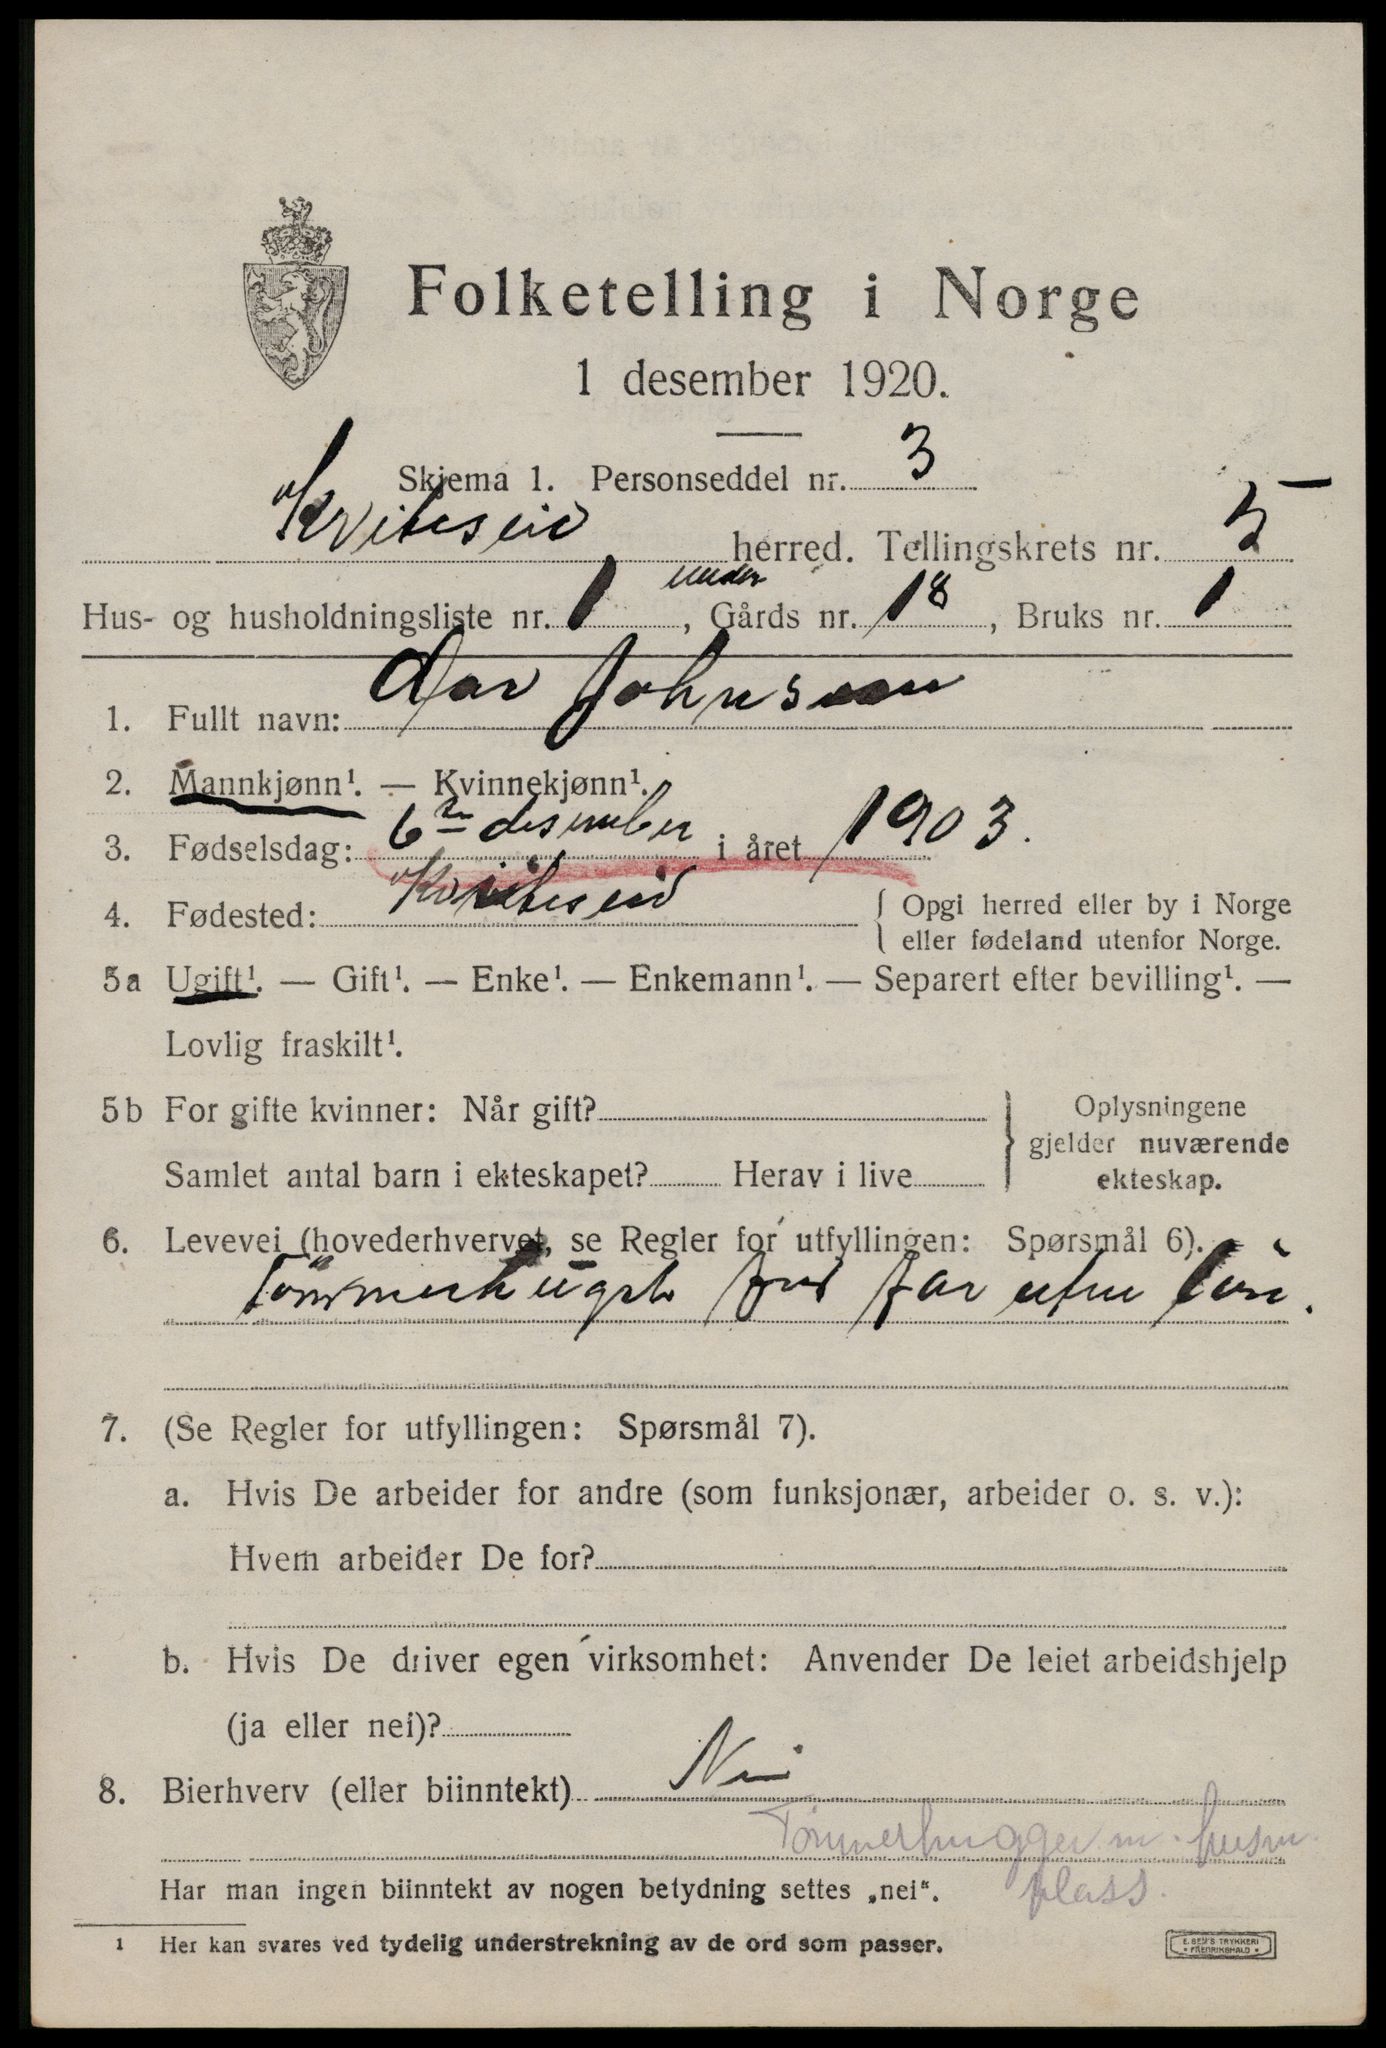 Folketelling i Norge
1 desember 1920.
Skjema 1. Personseddel nr. 3
Kviteseid herred. Tellingskrets nr. 5
under
Hus- og husholdningsliste nr. 1, Gårds nr. 18, Bruks nr. 1
1. Fullt navn: Johnsen
2. Mannkjønn¹. — Kvinnekjønn¹.
3. Fødselsdag: 6te desember i året 1903.
4. Fødested: Kviteseid { Opgi herred eller by i Norge
eller fødeland utenfor Norge.
5a Ugift¹. — Gift¹. — Enke¹. — Enkemann¹. — Separert efter bevilling¹. —
Lovlig fraskilt¹.
5b For gifte kvinner: Når gift? } Oplysningene
gjelder nuværende
Samlet antal barn i ekteskapet? Herav i live ekteskap.
6. Levevei (hovederhvervet, se Regler for utfyllingen: Spørsmål 6).
Tømmerhugst far uten
7. (Se Regler for utfyllingen: Spørsmål 7).
a. Hvis De arbeider for andre (som funksjonær, arbeider o. s. v.):
Hvem arbeider De for?
b. Hvis De driver egen virksomhet: Anvender De leiet arbeidshjelp
(ja eller nei)?
8. Bierhverv (eller biinntekt) Nei
Tømmerhugger m. husm.
Har man ingen biinntekt av nogen betydning settes „nei“. plass.
1 Her kan svares ved tydelig understrekning av de ord som passer.
E. SEM'S TRYKKERI
• FREDRIKSHALD •